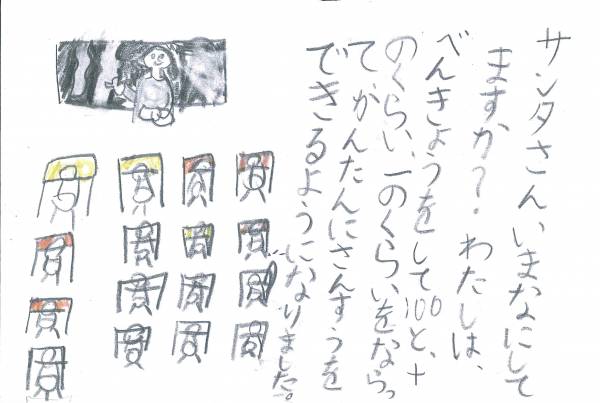 サンタさん、いまなにして
ますか？。わたしは、
べんきょうをして100と、十
のくらい、一のくらいをならっ
て、かんたんにさんすうを
できるようになりました。